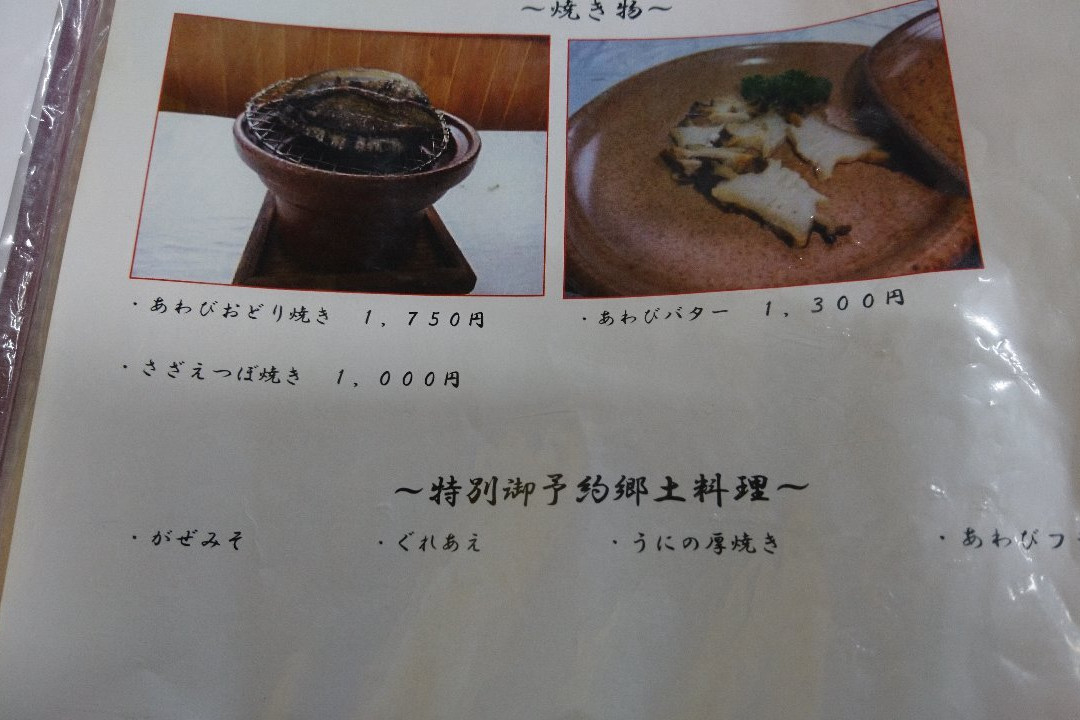 ～焼き物～
・あわびおどり焼き　１，７５０円
・あわびバター　１，３００円
・さざえつぼ焼き　１，０００円
～特別御予約郷土料理～
・がぜみそ　・ぐれあえ　・うにの厚焼き　・あわびフ